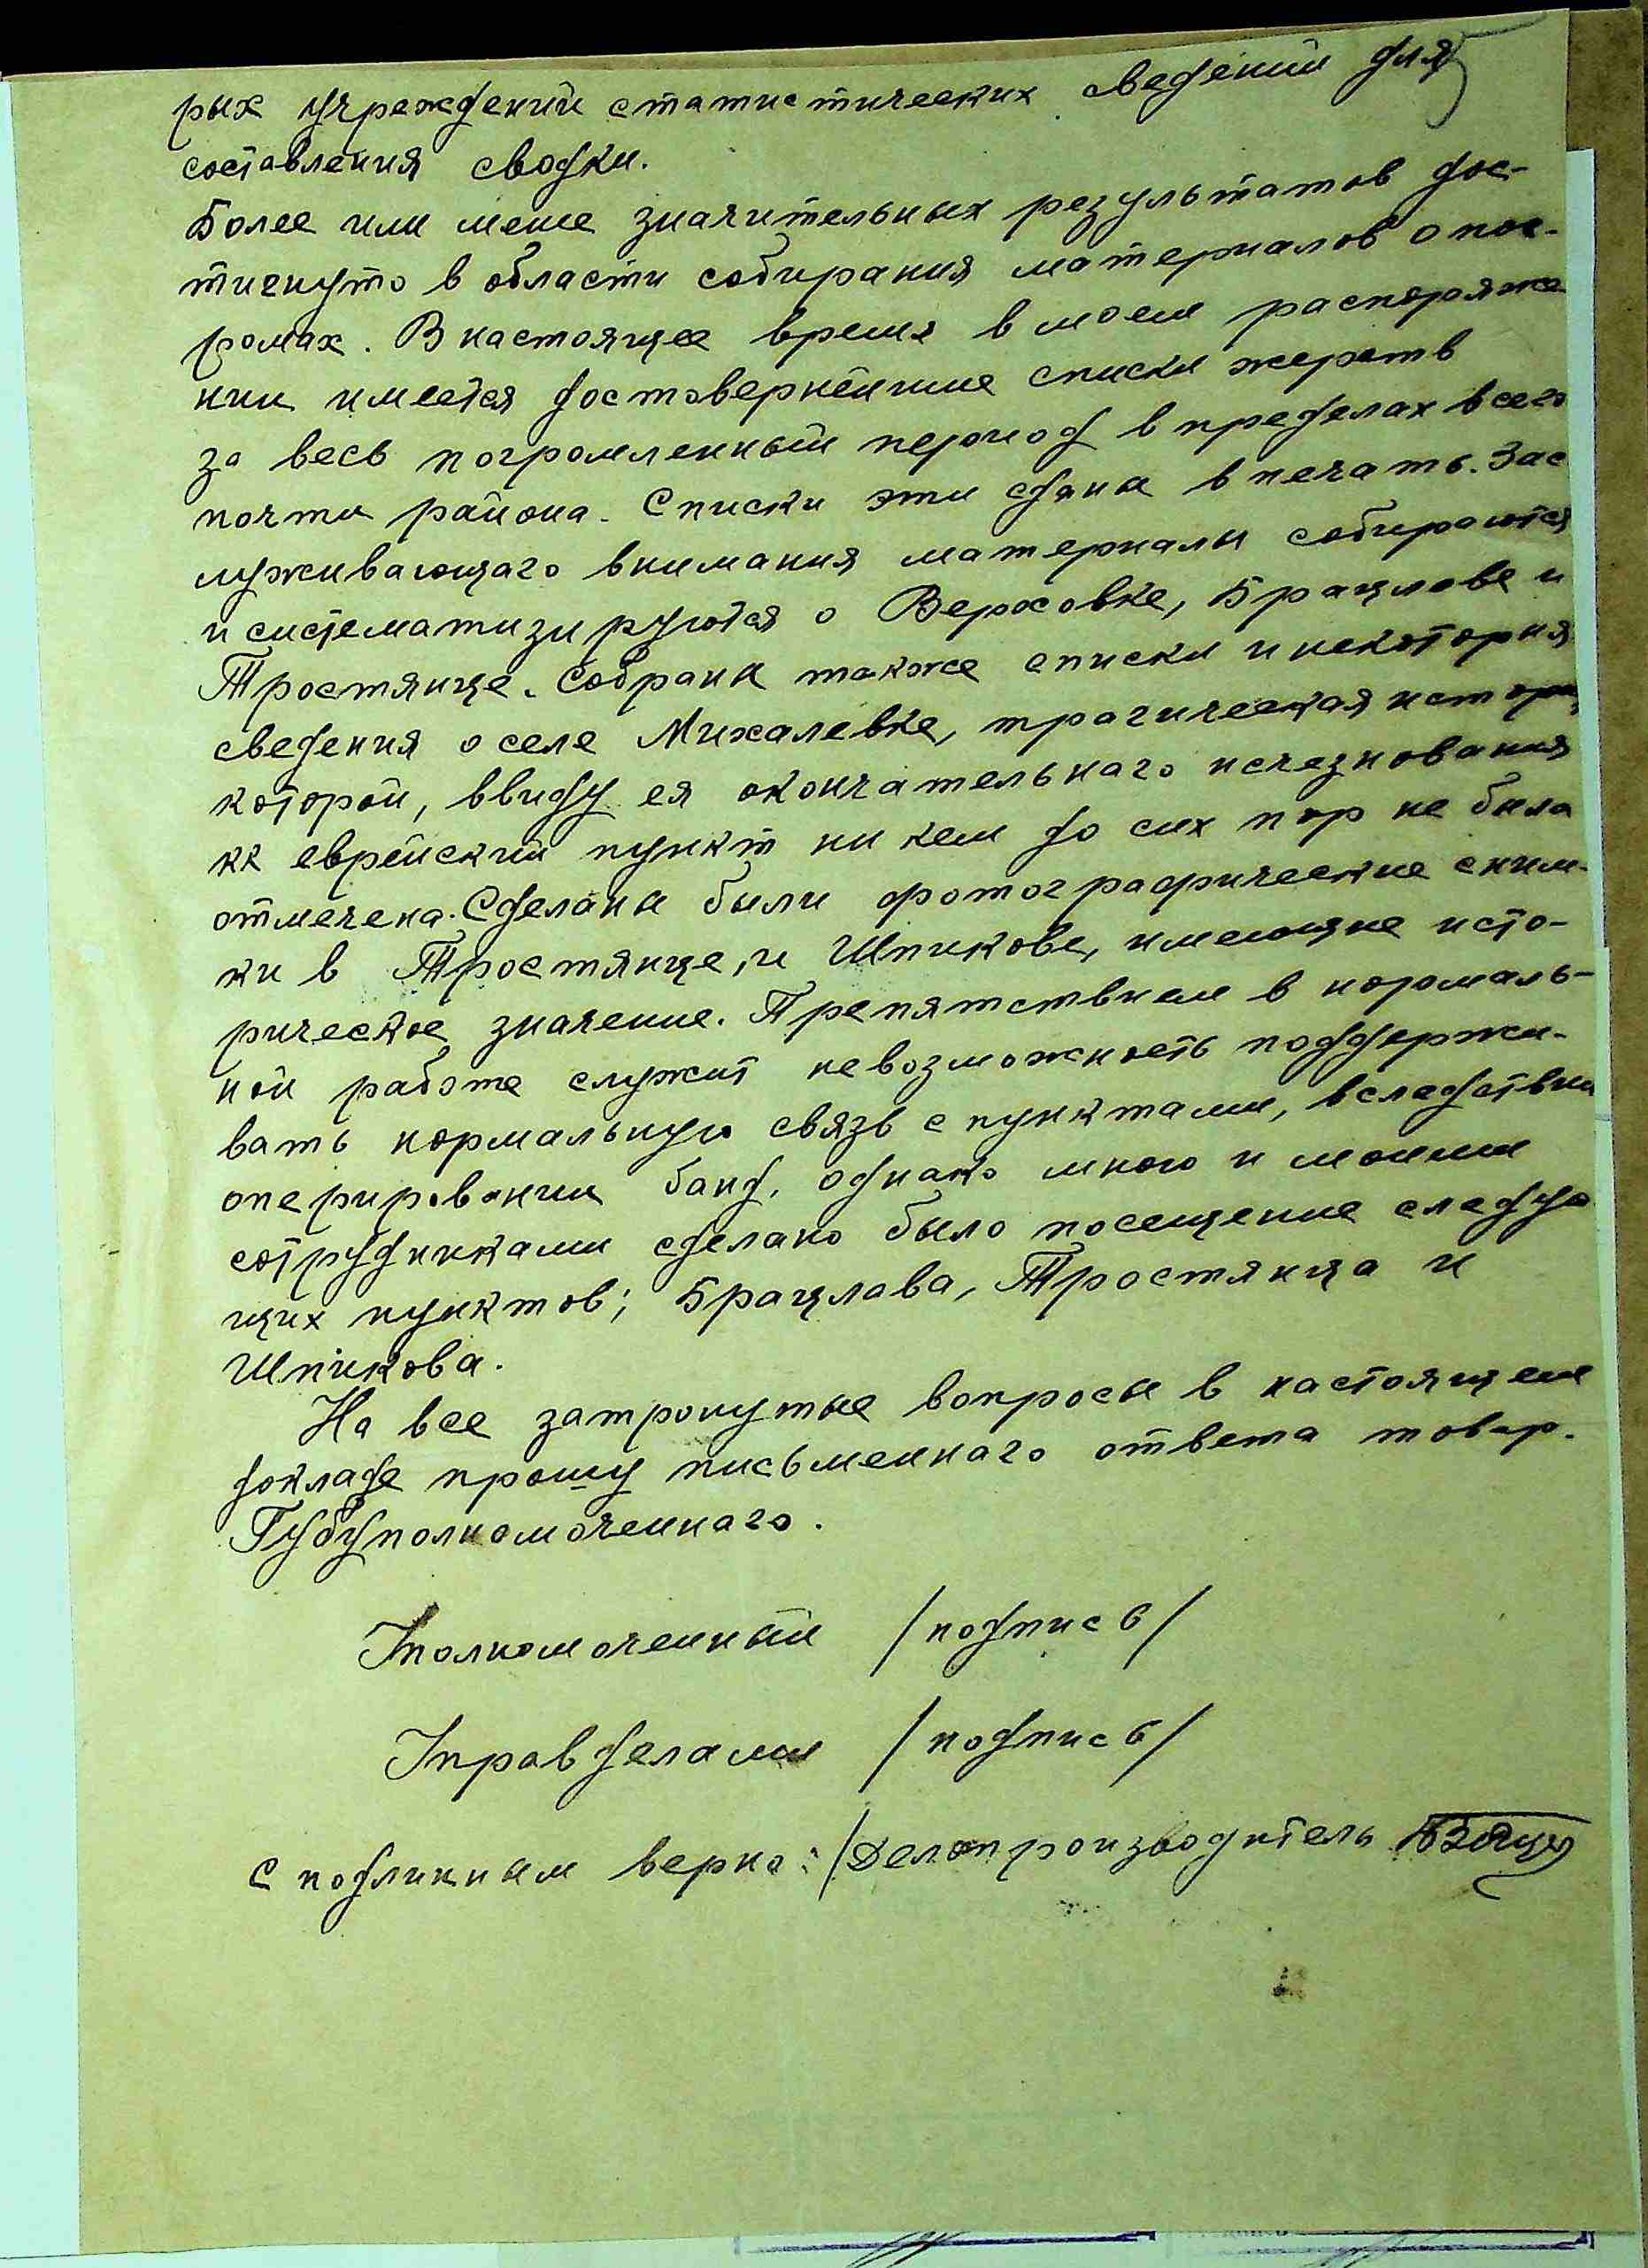 рых учреждений статистических сведений для
составления сводки.
Более или мение значительных результатов дос-
тигнуто в области собирания материалов о пог-
ромах. В настоящее время в моем распоряже-
нии имеется достовернейшие списки жертв
за весь погромленный период в пределах всего
почти района. Списки эти сданы в печать. Зас
луживающаго внимания материалы собираются
и систематизируются о Верховке, Брацлаве и
Тростянце. Собраны также списки и некоторыя
сведения о селе Михалевке, трагическая история
которой, ввиду ея окончательнаго исчезнования
кк еврейский пункт ни кем до сих пор не была
отмечена. Сделаны были фотографические сним-
ки в Тростянце, и Шпикове, имеющие исто-
рическое значение. Препятствием в нормаль-
ной работе служит невозможность поддержи-
вать нормальную связь с пунктами, вследствии
оперировании банд, однако мною и моими
сотрудниками сделано было посещение следую
щих пунктов; Брацлава, Тростянца и
Шпикова.
На все затронутые вопросы в настоящем
докладе прошу письменнаго ответа товар.
Губуполномоченнаго.
Уполномоченный /подпись/
Управделами /подпись/
С подлинным верно: /Делопроизводитель